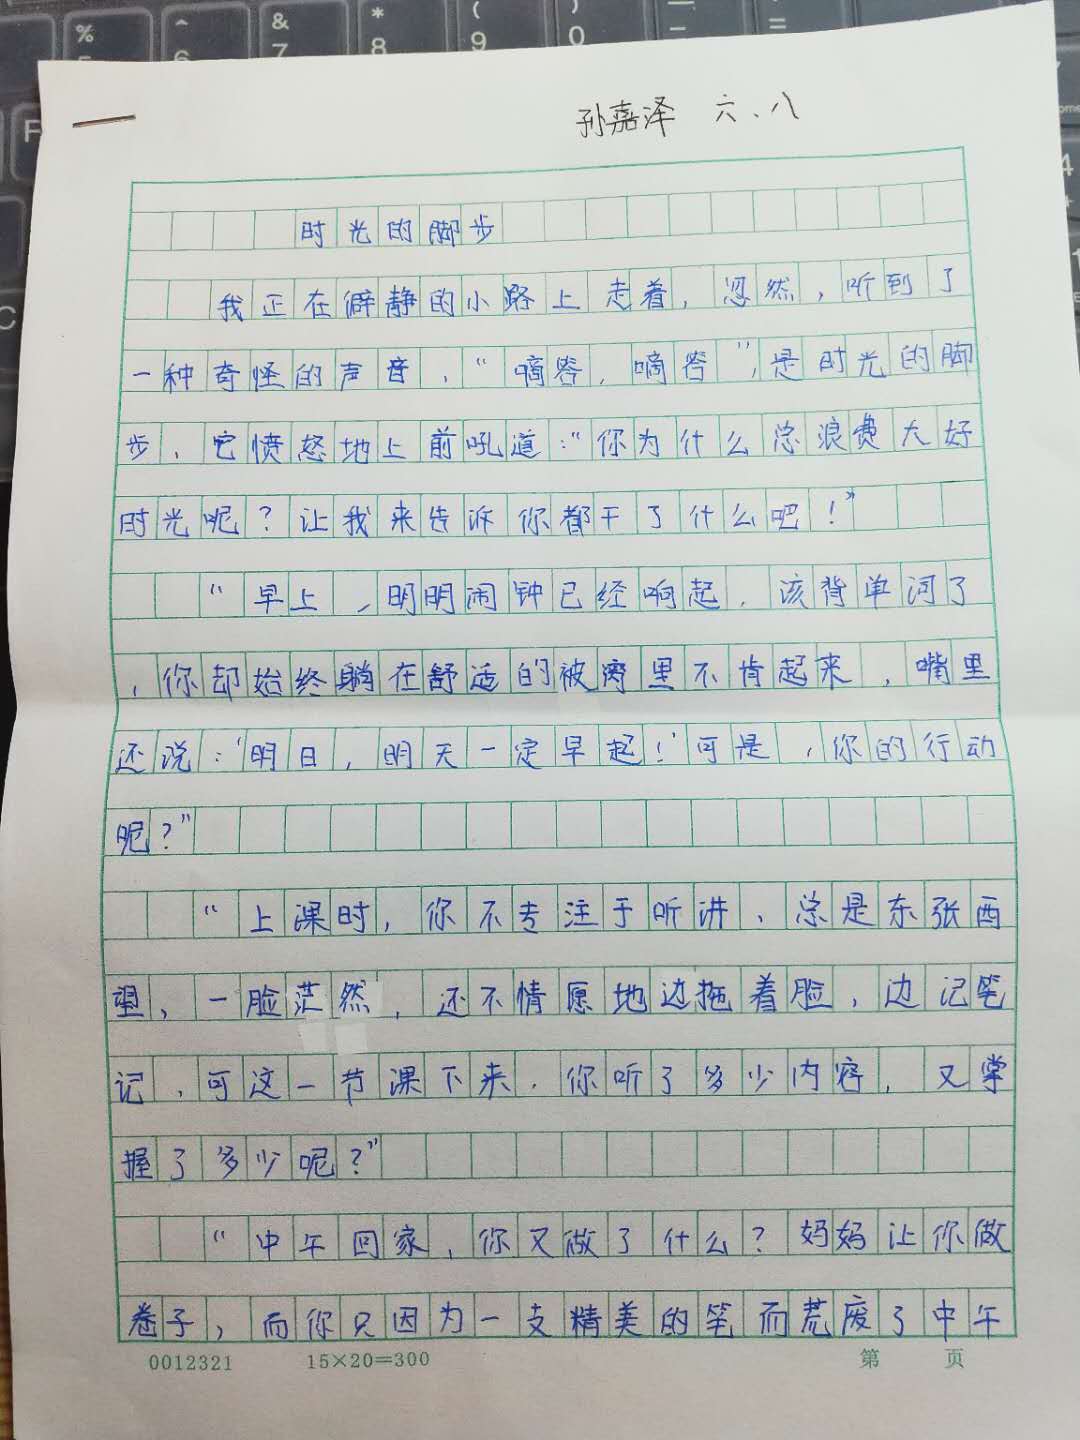 % ^ & * ( ) _ =
5 6 7 8 9 0 –
孙嘉泽 六、八
时光的脚步
我正在僻静的小路上走着，忽然，听到了
一种奇怪的声音，“嘀答，嘀答”，是时光的脚
步，它愤怒地上前吼道：“你为什么总浪费大好
时光呢？让我来告诉你都干了什么吧！”
“早上，明明闹钟已经响起，该背单词了
，你却始终躺在舒适的被窝里不肯起来，嘴里
还说：‘明日，明天一定早起！’可是，你的行动
呢？”
“上课时，你不专注于听讲、总是东张西
望，一脸茫然，还不情愿地边拖着脸，边记笔
记，可这一节课下来，你听了多少内容，又掌
握了多少呢？”
“中午回家，你又做了什么？妈妈让你做
卷子，而你只因为一支精美的笔而荒废了中午
0012321 15×20=300 第 页